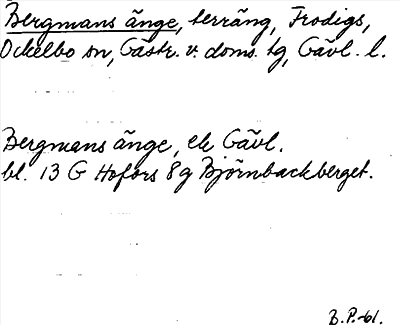 Bergmans änge, terräng, Frodigs,
Ockelbo sn, Gästr. v. doms. tg, Gävl. l.
Bergmans änge, ek Gävl.
bl. 13 G Hofors 8g Björnbackberget.
B.P.-61.